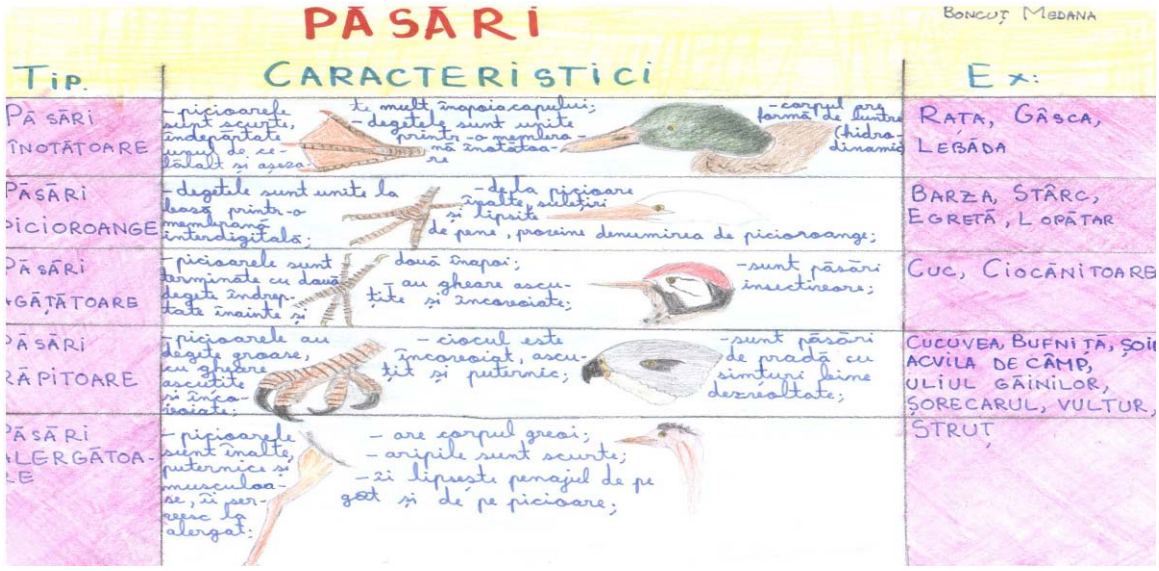 PĂSĂRI
BONCUȚ MEDANA
TIP.
CARACTERISTICI
EX:
PĂSĂRI
ÎNOTĂTOARE
-picioarele
sunt scurte,
îndepărtate
unul de ce-
lălalt și așeza-
te mult înapoia capului;
-degetele sunt unite
printr-o membra-
nă înotătoa-
re
-corpul are
formă de luntre
(hidro-
dinamic
RAȚA, GÂSCA,
LEBĂDA
PĂSĂRI
PICIOROANGE
-degetele sunt unite la
bază printr-o
membrană
interdigitală;
-de la picioare
înalte, subțiri
și lipsite
de pene, provine denumirea de picioroange;
BARZA, STÂRC,
EGRETĂ, LOPĂTAR
PĂSĂRI
AGĂȚĂTOARE
-picioarele sunt
terminate cu două
degete îndrep-
tate înainte și
două înapoi;
au gheare ascu-
țite și încovoiate;
-sunt păsări
insectivore;
CUC, CIOCĂNITOARE
PĂSĂRI
RĂPITOARE
-picioarele au
degete groase,
cu gheare
ascuțite
și înco-
voiate;
-ciocul este
încovoiat, ascu-
țit și puternic;
-sunt păsări
de pradă cu
simțuri bine
dezvoltate;
CUCUVEA, BUFNIȚĂ, ȘOIM
ACVILA DE CÂMP,
ULIUL GĂINILOR,
ȘORECARUL, VULTUR,
PĂSĂRI
ALERGĂTOA-
RE
-picioarele
sunt înalte,
puternice și
musculoa-
se, îi ser-
vesc la
alergat;
-are corpul greoi;
-aripile sunt scurte;
-îi lipsește penajul de pe
gât și de pe picioare;
STRUȚ